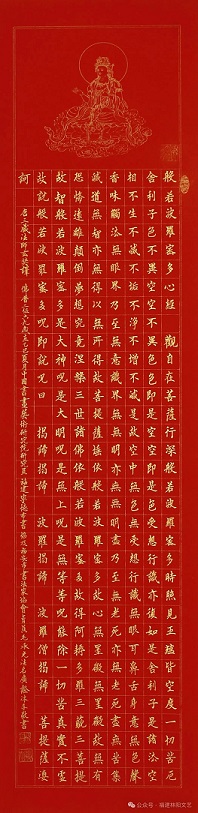 般若波羅蜜多心經 觀自在菩薩行深般若波羅蜜多時照見五蘊皆空度一切苦厄
舍利子色不異空空不異色色即是空空即是色受想行識亦復如是舍利子是諸法空
相不生不滅不垢不淨不增不減是故空中無色無受想行識無眼耳鼻舌身意無色聲
香味觸法無眼界乃至無意識界無無明亦無無明盡乃至無老死亦無老死盡無苦集
滅道無智亦無得以無所得故菩提薩埵依般若波羅蜜多故心無罣礙無罣礙故無有
恐怖遠離顛倒夢想究竟涅槃三世諸佛依般若波羅蜜多故得阿耨多羅三藐三菩提
故智般若波羅蜜多是大神咒是大明咒是無上咒是無等等咒能除一切苦真實不虛
故說般若波羅蜜多咒即說咒曰 揭諦揭諦 波羅揭諦 波羅僧揭諦 菩提薩婆
訶 唐三藏法師玄奘譯 乙巳夏月中國書畫藝術研究院研究員福建 市書法家協會會員 敬書
公众号 · 福建林阳文艺